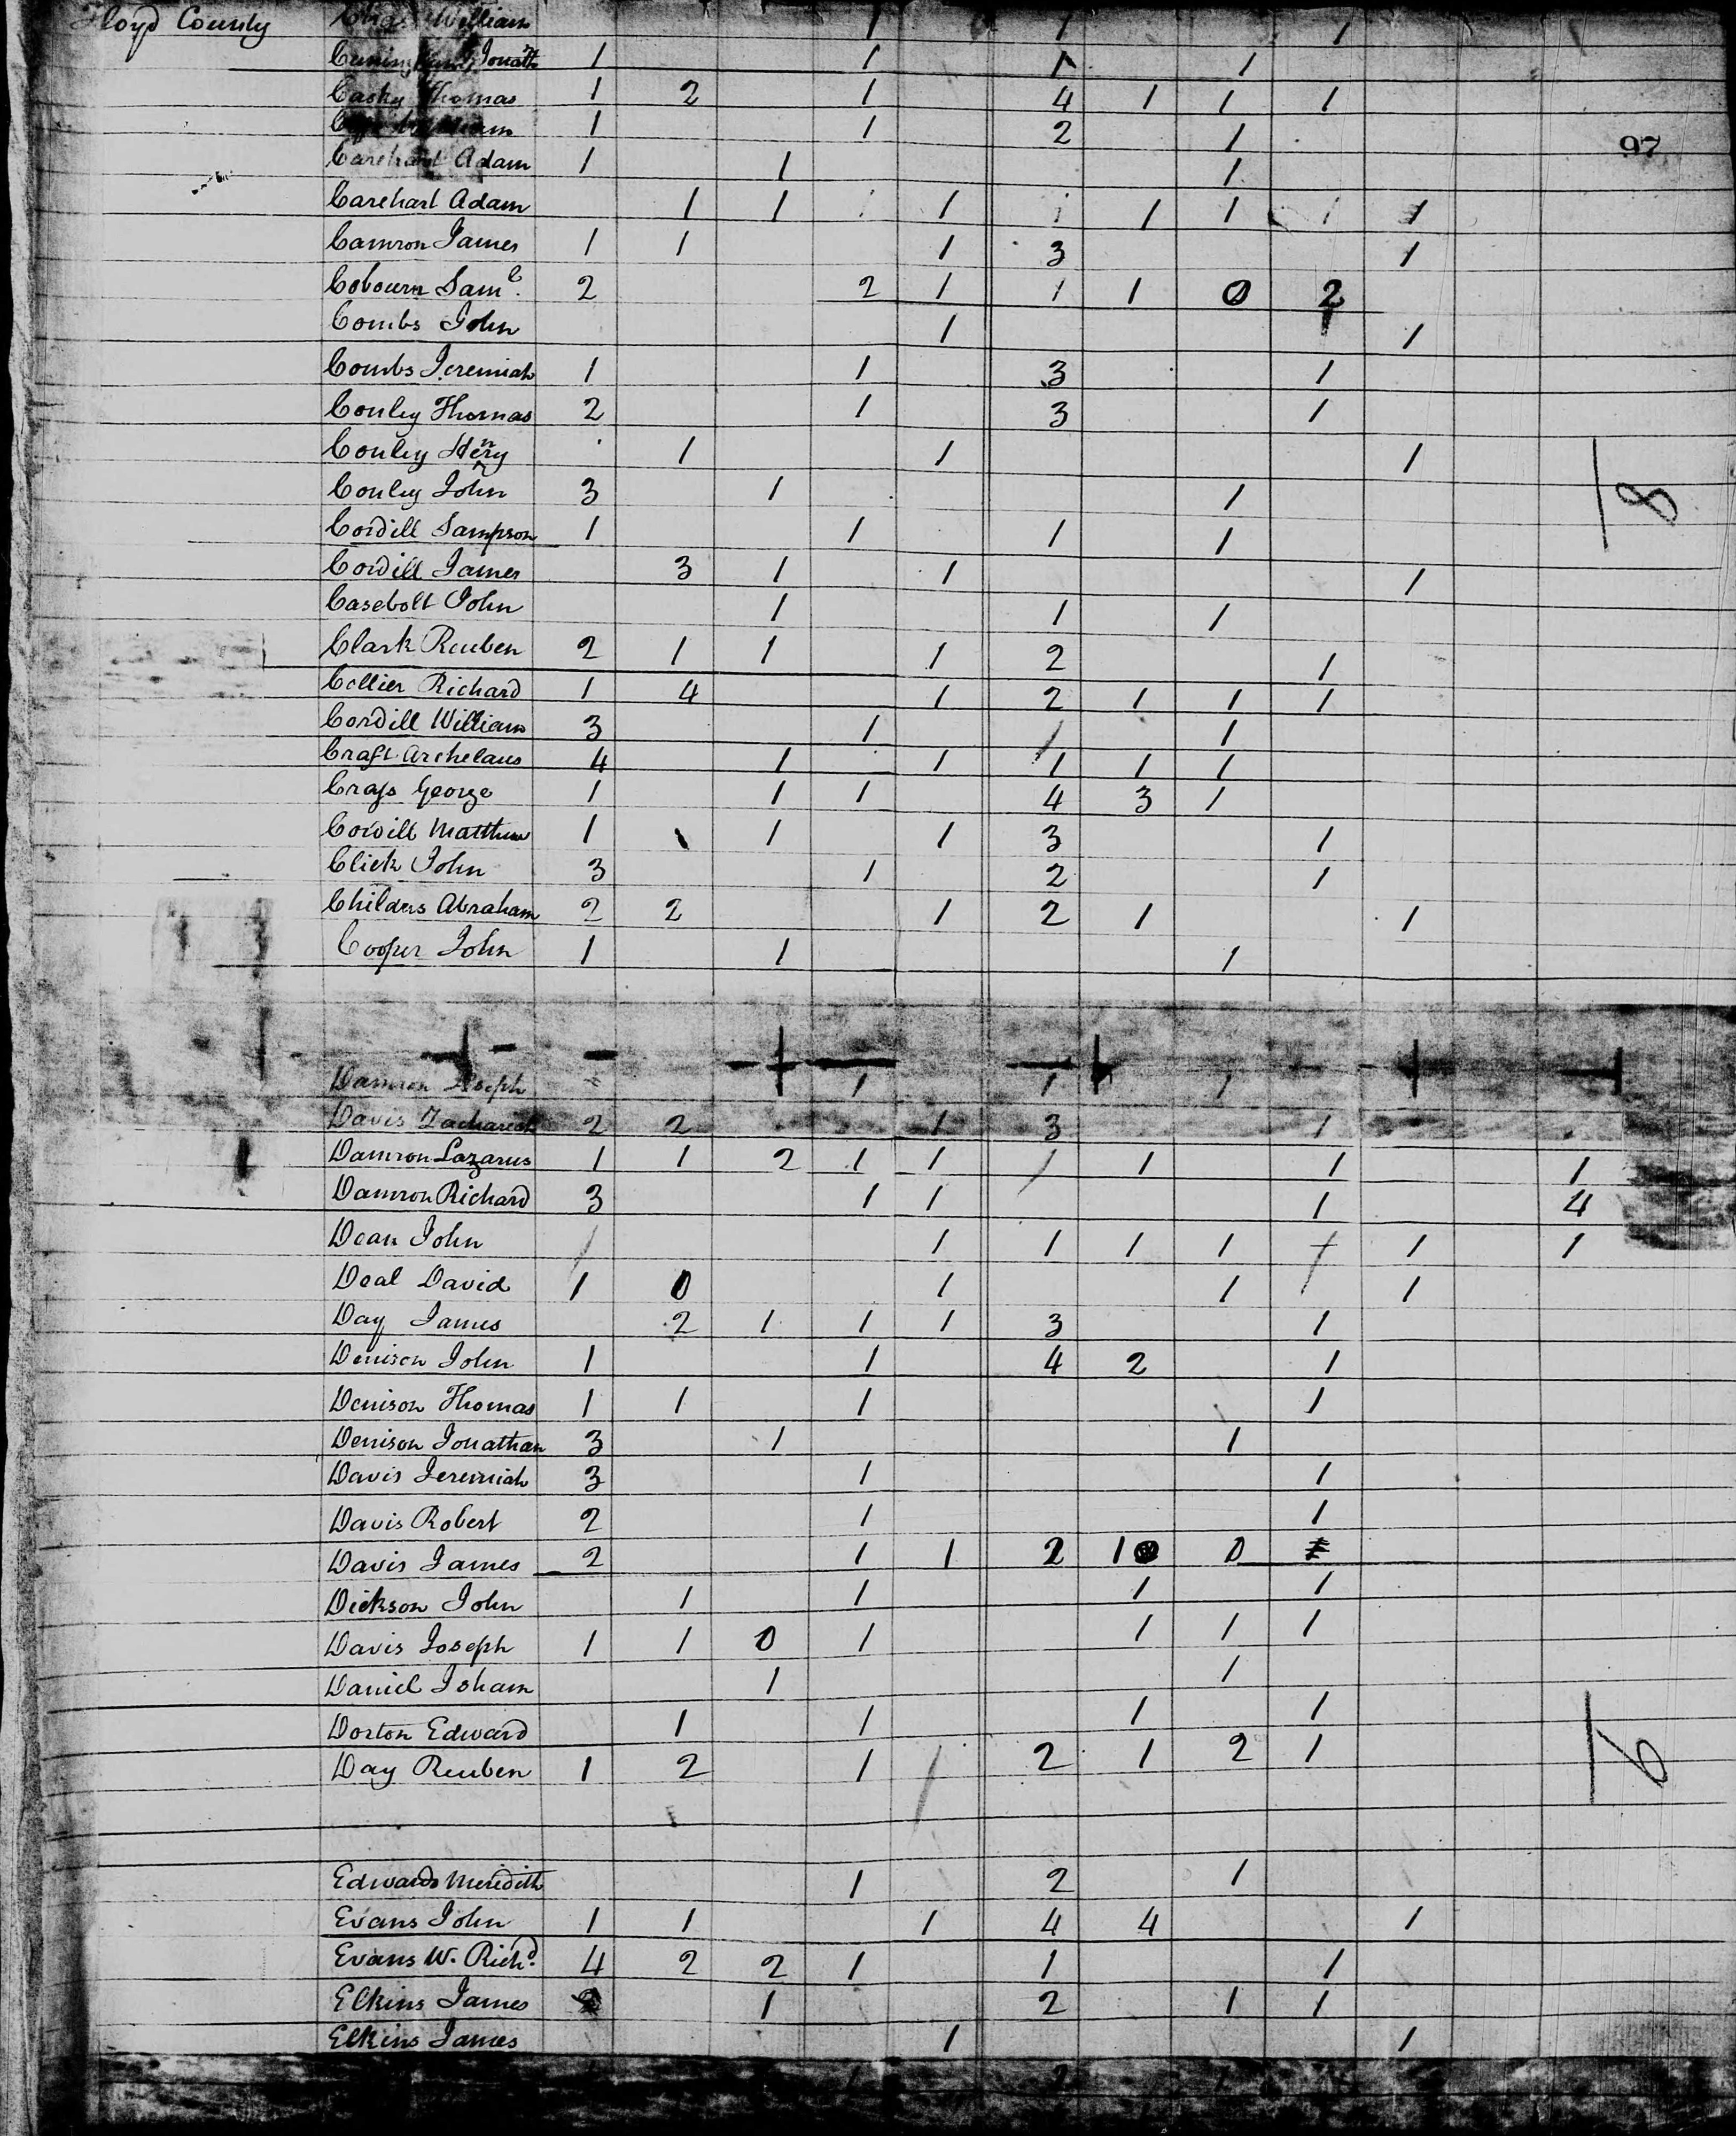 Floyd County William 1 1 1
Jonathn 1 1 1 1
Casky Thomas 1 2 1 4 1 1 1
1 1 2 1
97
Carehart Adam 1 1 1
Carehart Adam 1 1 1 1 1 1 1 1 1
Camron James 1 1 1 3 1
Cobourn Saml. 2 2 1 1 1 0 2
Combs John 1 1 1
Combs Jeremiah 1 1 3 1
Conley Thomas 2 1 3 1
Conley Henry 1 1 1
Conley John 3 1 1
18
Cordill Sampson 1 1 1 1
Cordill James 3 1 1 1
Casebolt John 1 1 1
Clark Reuben 2 1 1 1 2 1
Collier Richard 1 4 1 2 1 1 1
Cordill William 3 1 1 1
Craft Archelaus 4 1 1 1 1 1
George 1 1 1 4 3 1
Cordill Matthew 1 1 1 1 3 1
Click John 3 1 2 1
Childers Abraham 2 2 1 2 1 1
Cooper John 1 1 1
Damron Joseph 1 1 1
Davis Zachariah 2 2 1 3 1
Damron Lazarus 1 1 2 1 1 1 1 1 1
Damron Richard 3 1 1 1 4
Dean John 1 1 1 1 1 1
Deal David 1 0 1 1 1
Day James 2 1 1 1 3 1
Denison John 1 1 4 2 1
Denison Thomas 1 1 1 1
Denison Jonathan 3 1 1
Davis Jeremiah 3 1 1
Davis Robert 2 1 1
Davis James 2 1 1 2 1 0
Dickson John 1 1 1 1
Davis Joseph 1 1 0 1 1 1 1
Daniel Isham 1 1
Dorton Edward 1 1 1 1
16
Day Reuben 1 2 1 2 1 2 1
Edwards Meridith 1 2 1
Evans John 1 1 1 4 4 1
Evans W. Richd. 4 2 2 1 1 1
Elkins James 1 2 1 1
Elkins James 1 1